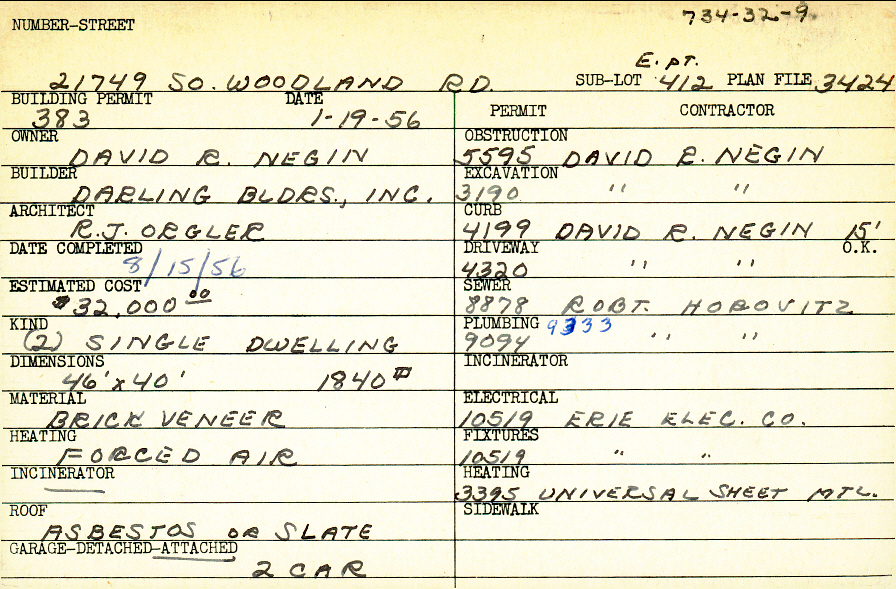 734-32-9
NUMBER-STREET
E. pt.
21749 SO. WOODLAND RD. SUB-LOT 412 PLAN FILE 3424
BUILDING PERMIT DATE
383 1-19-56
OWNER
DAVID R. NEGIN
BUILDER
DARLING BLDRS., INC.
ARCHITECT
R.J. ORGLER
DATE COMPLETED
8/15/56
ESTIMATED COST
$32,000.00
KIND
(2) SINGLE DWELLING
DIMENSIONS
46' x 40' 1840#
MATERIAL
BRICK VENEER
HEATING
FORCED AIR
INCINERATOR
ROOF
ASBESTOS OR SLATE
GARAGE-DETACHED-ATTACHED
2 CAR
PERMIT CONTRACTOR
OBSTRUCTION
5595 DAVID R. NEGIN
EXCAVATION
3190 " "
CURB
4199 DAVID R. NEGIN 15'
DRIVEWAY O.K.
4320 " "
SEWER
8878 ROBT. HOROVITZ
PLUMBING 9333
9094 " "
INCINERATOR
ELECTRICAL
10519 ERIE ELEC. CO.
FIXTURES
10519 " "
HEATING
3395 UNIVERSAL SHEET MTL.
SIDEWALK